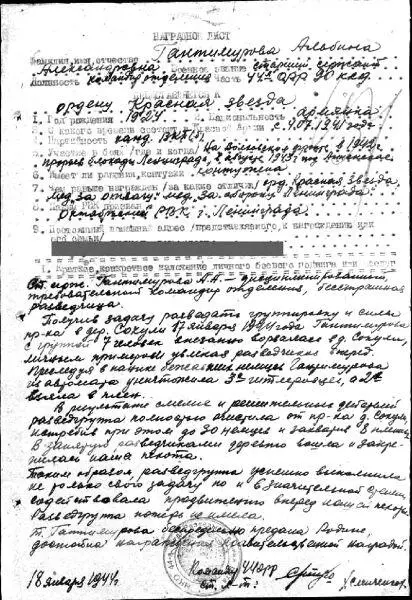 НАГРАДНОЙ ЛИСТ
Фамилия имя, отчество Гантимурова Альбина
Александровна Военное звание старший сержант
Должность командир отделения Часть 44 ОРР 90 ксд
ордену Красная звезда
1. Год рождения 1924 2. Национальность армянка
3. С какого времени состоит в Красной Армии с 4.07.1941 года
Партийность канд. ВКП(б)
5. Участие в боях /где и когда/ На Волховском фронте в 1942 г.
прорыв блокады Ленинграда, в августе 1943 г. под
6. Имеет ли ранения, контузии контужена
7. Чем раньше награжден /за какие отличия/ орд. Красная Звезда
мед. За отвагу, мед. За оборону Ленинграда
8. Каким РВК призван Октябрьским РВК г. Ленинграда
9. Постоянный домашний адрес /представляемого к награждению или
его семьи/
1. Краткое, конкретное изложение личного боевого подвига или заслуг
Ст. серж. Гантимурова А.А. дисциплинированный,
требовательный командир отделения, бесстрашная
разведчица.
Получив задачу разведать группировку и силы
пр-ка в дер. Сокули 17 января 1944 года Гантимурова
с группой 7 человек внезапно ворвалась в д. Сокули,
личным примером увлекая разведчиков вперед.
немцев Гантимурова
из автомата уничтожила 3х гитлеровцев, а 2х
взяла в плен.
В результате смелых и решительных действий
разведгруппа полностью очистила от пр-ка д. Сокули,
истребив при этом до 30 немцев и захватив в плен
В занятую разведчиками деревню вошла и закре-
пилась наша пехота.
Таким образом, разведгруппа успешно выполнила
не только свою задачу но и в значительной степени
содействовала продвижению вперед нашей пехоты.
Разведгруппа потерь не имела.
т. Гантимурова беззаветно предана Родине,
достойна награждения правительственной наградой.
Командир 44 ОРР
18 января 1944 г. ст. л-т: